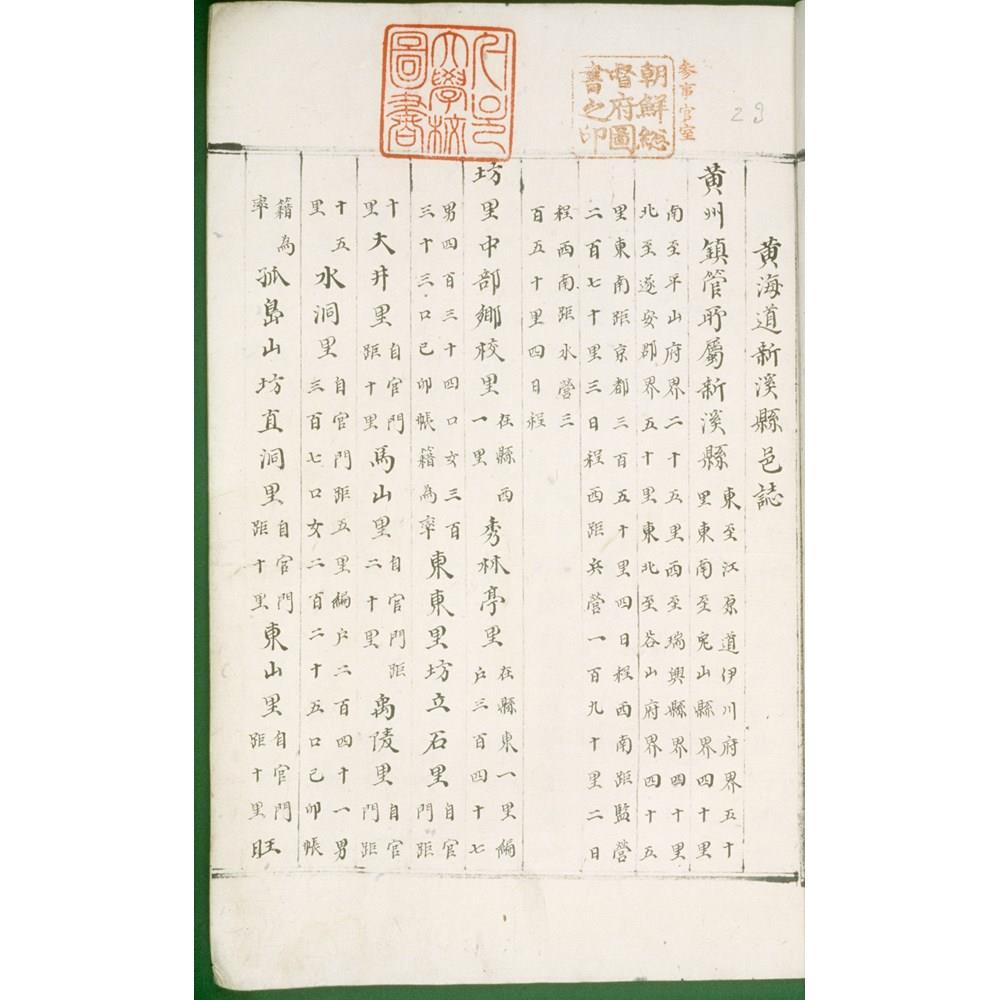 参事官室
朝鮮総
督府圖
書之印
大學校
圖書
黃海道新溪縣邑誌
黃州鎭管所屬新溪縣 東至江原道伊川府界五十
里東南至兎山縣界四十里
南至平山府界二十五里西至瑞興縣界四十里
北至遂安郡界五十里東北至谷山府界四十五
里東南距京都三百五十里四日程西南距監營
二百七十里三日程西距兵營一百九十里二日
程西南距水營三
百五十里四日程
坊里中部鄕校里 在縣西一里 秀林亭里 在縣東一里編戶三百四十七
男四百三十四口女三百三十三口己卯帳籍為率 東東里坊立石里 自官門距
十里 大井里 自官門距十里 馬山里 自官門距二十里 禹陵里 自官門距
十五里 水洞里 自官門距五里編戶二百四十一男三百七口女二百二十五口己卯帳
籍為率 孤島山坊直洞里 自官門距十里 東山里 自官門距十里 旺